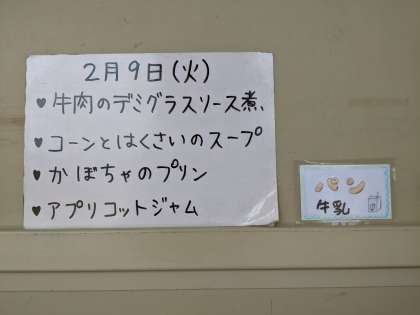 2月9日(火)
♥牛肉のデミグラスソース煮、
♥コーンとはくさいのスープ
♥かぼちゃのプリン
♥アプリコットジャム
パン
牛乳